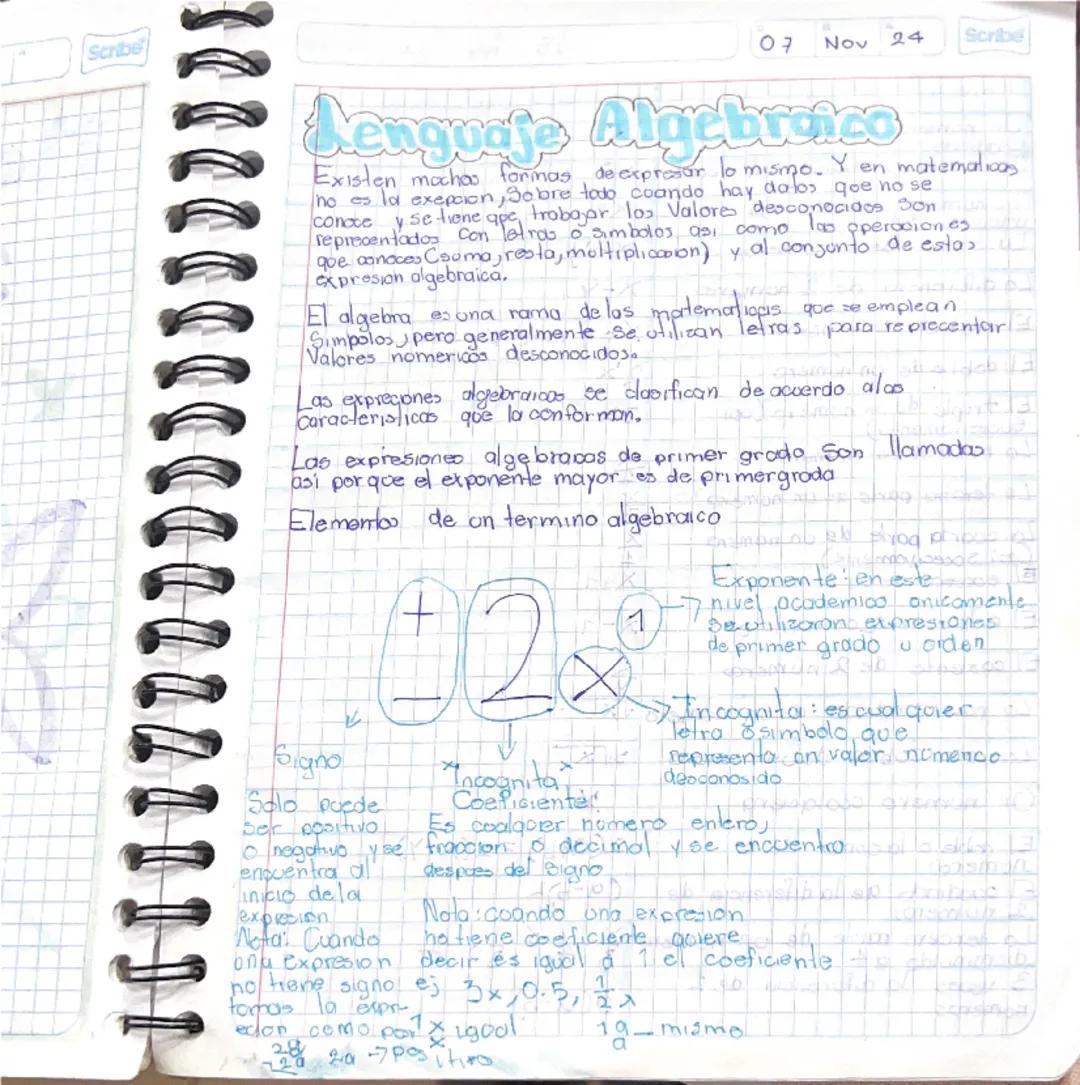 Scribe
07 Nov 24
Scribe
Lenguaje Algebraico
Existen muchas formas de expresar lo mismo. Y en matematicas
no es la exepcion, Sobre todo cuando hay datos que no se
conoce y se tiene que trabajar los Valores desconocidos son
reprecentados con letras o simbolos asi como las operaciones
que conoces (suma, resta, multiplicacion) y al conjunto de estas
expresion algebraica.
El algebra es una rama de las matematicas que se emplean
Simbolos, pero generalmente se utilizan letras para reprecentar
Valores numericos desconocidos.
Las expreciones algebraicas se clasifican de acuerdo alas
caracteristicas que la conforman.
Las expresiones algebracas de primer grado son llamadas
asi porque el exponente mayor es de primer grado
Elementos de un termino algebraico
+
-
2
x
1
Exponente: en este
nivel academico unicamente
se utilizaran expresiones
de primer grado u orden
Incognita: es cualquier
letra o simbolo que
representa un valor numerico
desconosido
Signo
Solo puede
ser positivo
o negativo y se
encuentra al
inicio de la
expresion
Nota: Cuando
una expresion
no tiene signo
tomas la
como por igual
2a → positivo
"Incognita"
Coeficiente:
Es cualquier numero entero,
fraccion o decimal y se encuentra
despues del signo
Nota: cuando una expresion
no tiene coeficiente quiere
decir es igual a 1 el coeficiente
ej 3x, 0.5, 1/2 x
1x
x
1a - mismo
a